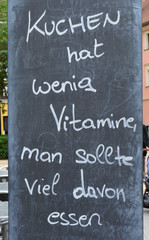 KUCHEN
hat
wenig
Vitamine,
man sollte
viel davon
essen